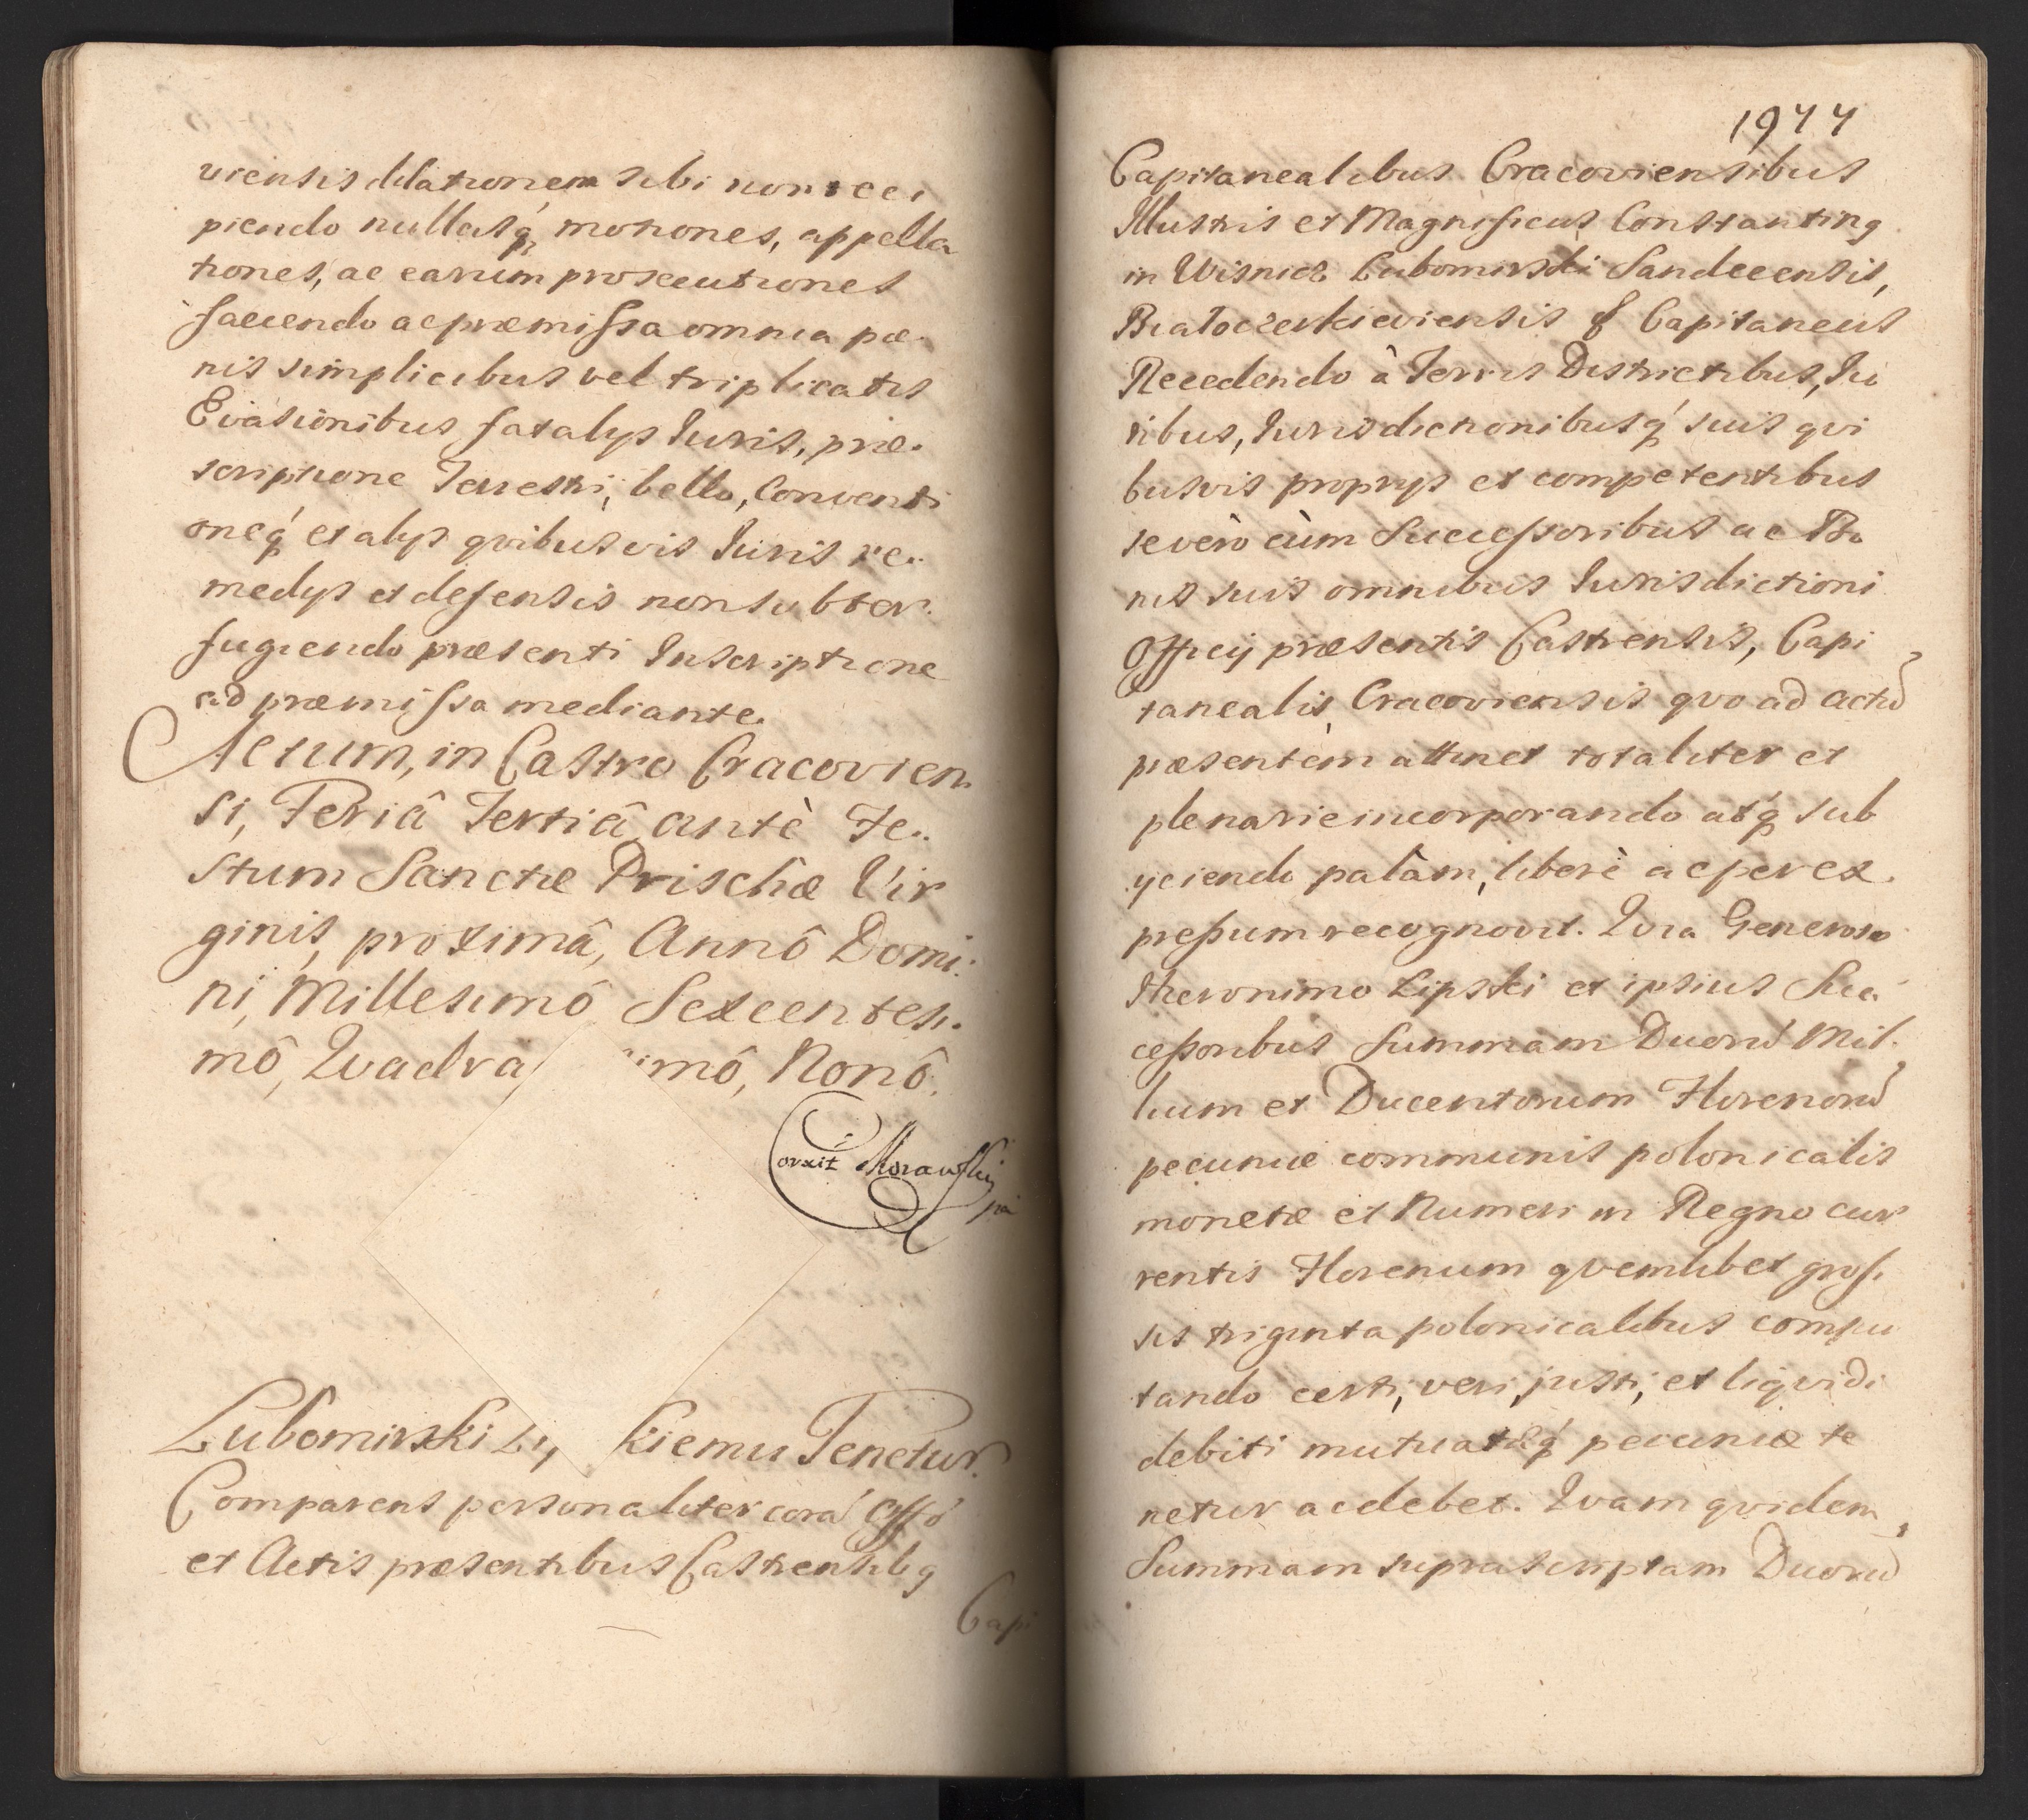 viensis dilationem sibi non reci
piendo nullasq́ motiones, appella
tiones, ac earum prosecutiones
faciendo ac præmissa omnia pæ.
nis simplicibus vel triplicatis
Evasionibus fatalys Iuris, præ.
scriptione Terrestri, bello, Conventi
oneq́ et alys qvibusvis Iuris re.
medys et defensis non subter.
fugiendo præsenti Inscriptione
ad præmissa mediante.
Actum, in Castro Cracovien
si, Feriâ Tertiâ antè Fe.
stum Sanctæ Prischæ Vir
ginis, proximâ, Annô Domi.
ni, Millesimô Sexcentesi.
mô, Qvadra imô, Nonô.
Corxit Morawskij
Lubomirski Ly kiemu Tenetur.
Comparens personaliter corã Offô
et Actis præsentibus Castrensibg
Capi
1977
Capitanealibus Cracoviensibus
Illustris et Magnificus Constanting
in Wisnicz Lubomirski Sandecensis,
Białocerkieviensis & Capitaneus
Recedendo à Terris Districtibus, Iu
ribus, Iurisdictionibusq́ suis qvi
busvis proprys et competentibus
se verò cùm Successoribus ac Bo
nis suis omnibus Iurisdictioni
Officij præsentis Castrensis, Capi
tanealis Cracoviensis qvo ad actũ
præsentem attinet totaliter et
plenarie incorporando atq́ sub
yciendo palàm, liberè ac per ex.
pressum recognovit. Qvia Generoso
Hieronimo Lipski et ipsius Suc
cessoribus Summam Duorũ Mil.
lium et Ducentorum Florenorũ
pecuniæ communis polonicalis
monetæ et Numeri in Regno cur
rentis Florenum qvemlibet gros.
sis triginta polonicalibus compu
tando certi, veri, justi, et liqvidi
debiti mutuatæq́ pecuniæ te
netur ac debet. Qvam qvidem
Summam suprascriptam Duorũ